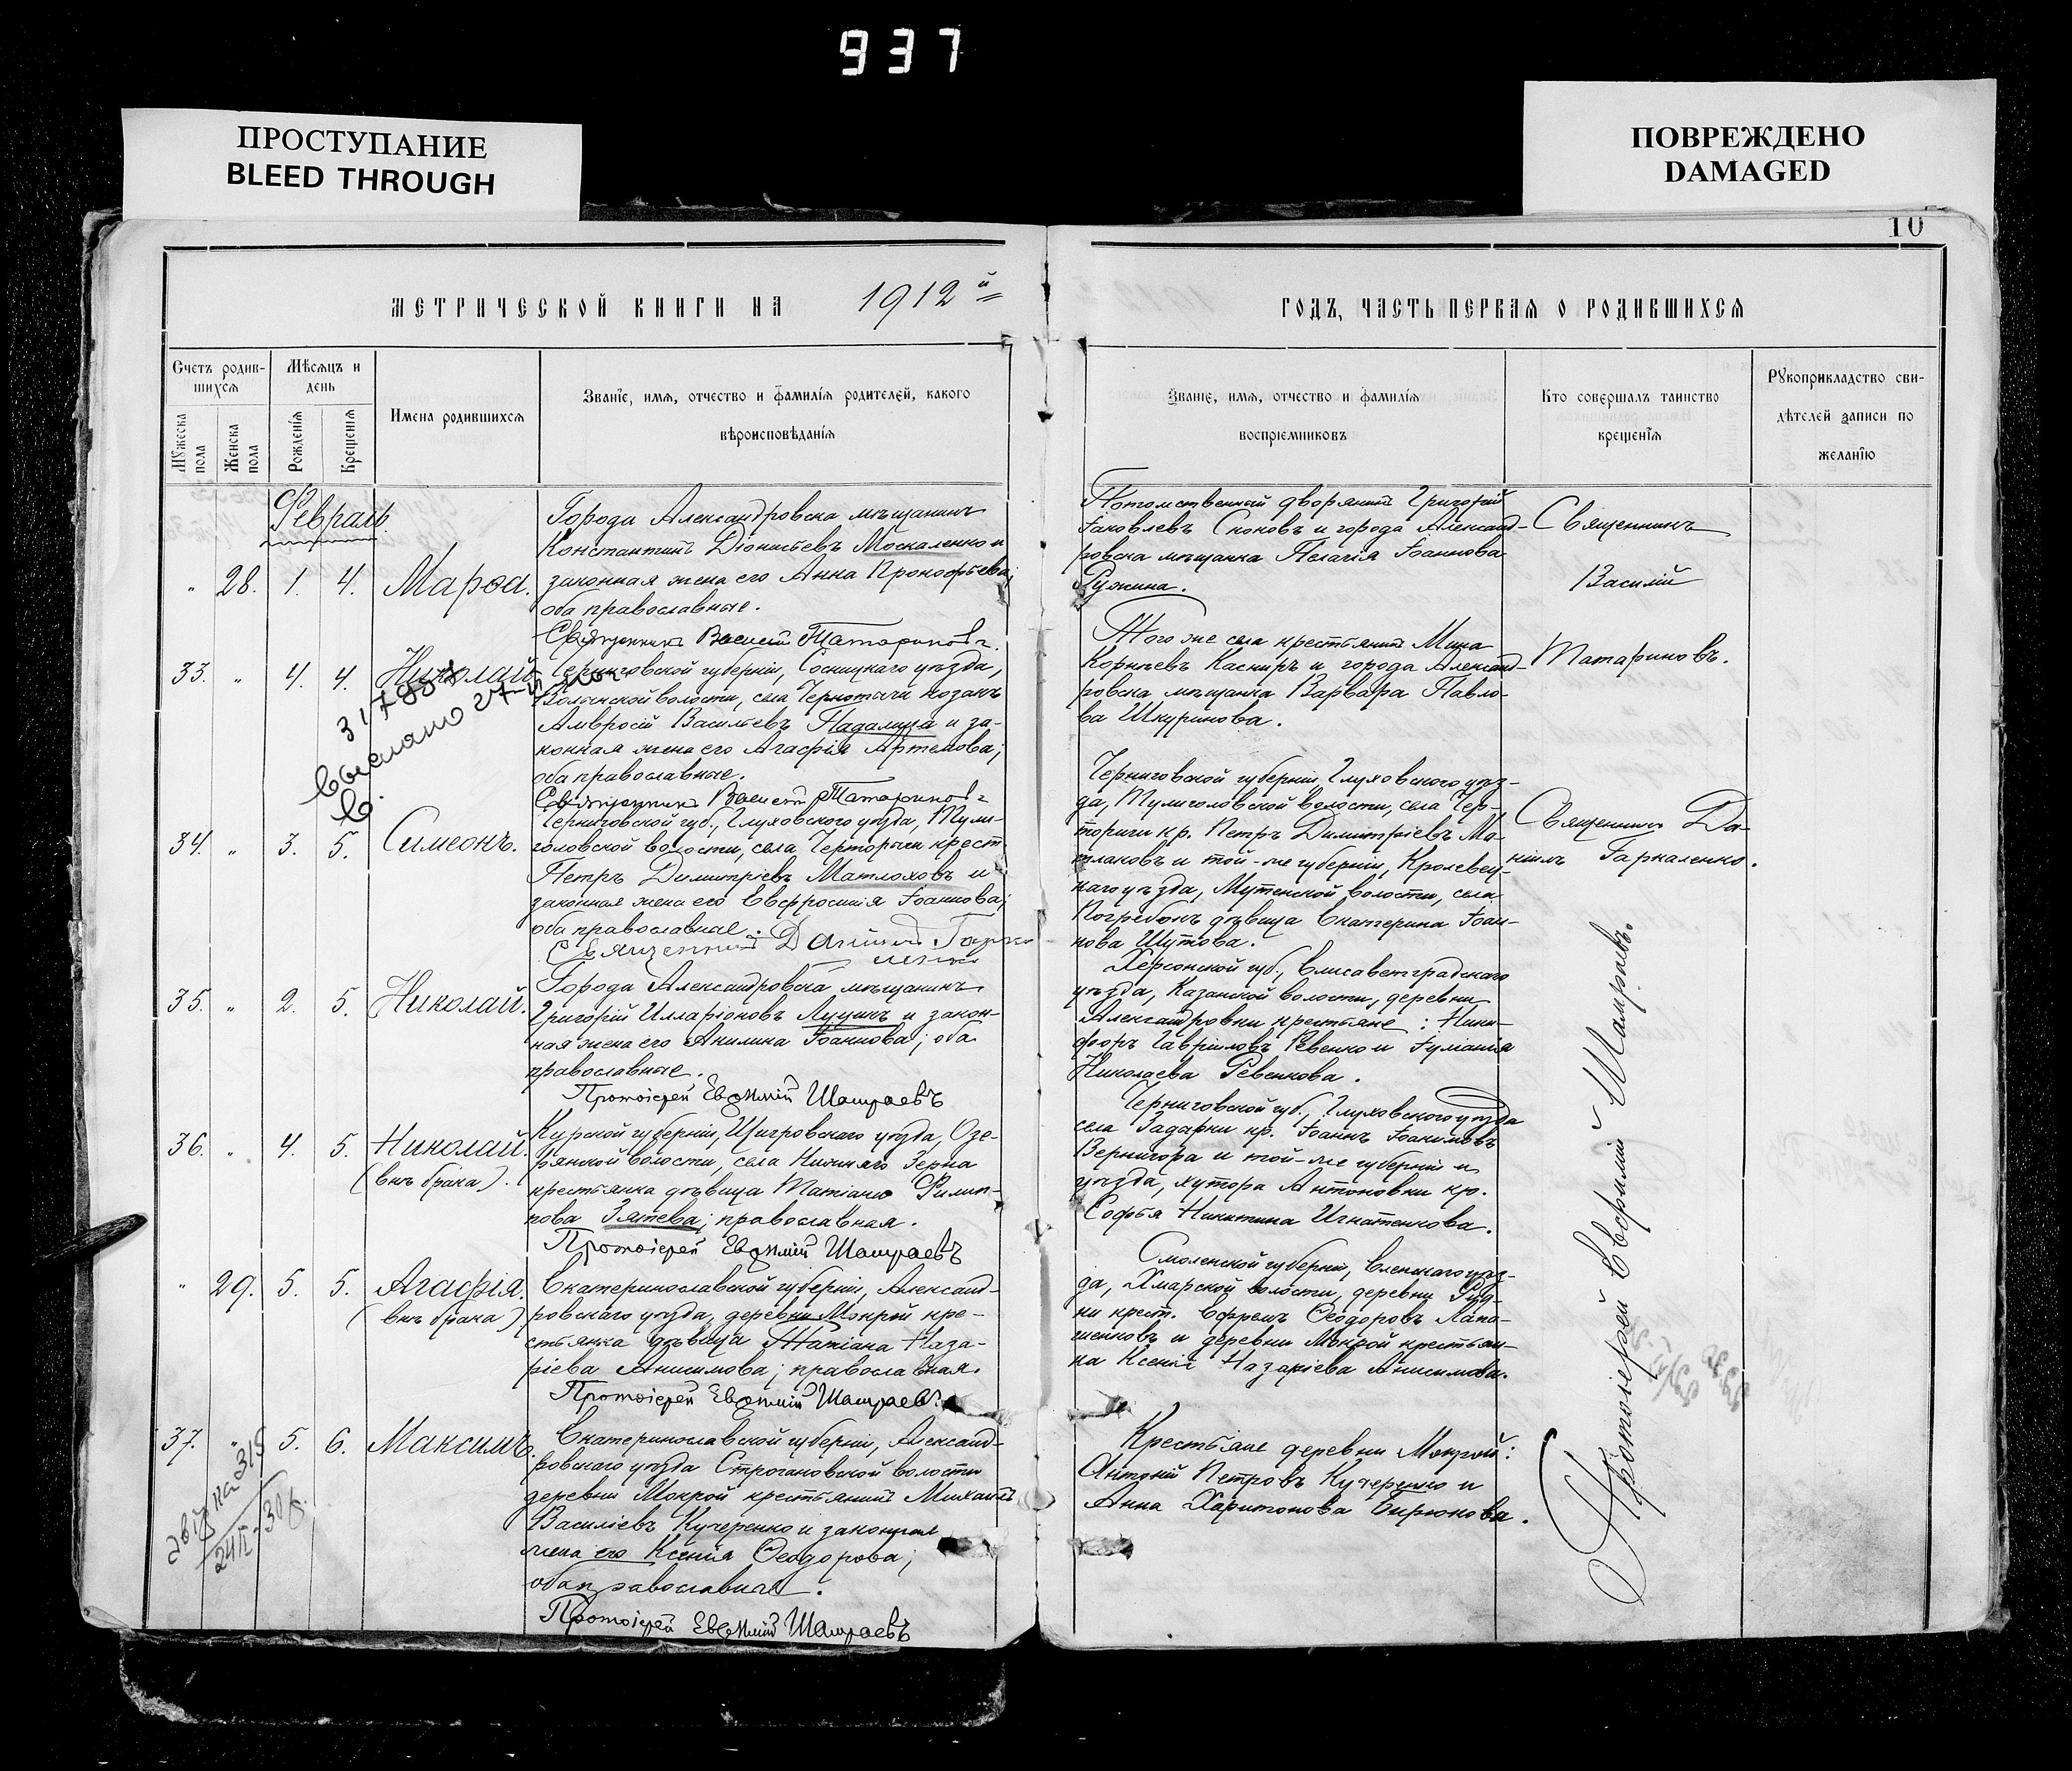 937
ПРОСТУПАНИЕ
BLEED THROUGH
ПОВРЕЖДЕНО
DAMAGED
10
МЕТРИЧЕСКОЙ КНИГИ НА 1912й
ГОДЪ, ЧАСТЬ ПЕРВАЯ О РОДИВШИХСЯ
Счетъ родив-
шихся
Мѣсяцъ и
день
Мужеска
пола
Женска
пола
Рожденія
Крещенія
Имена родившихся
Званіе, имя, отчество и фамилія родителей, какого
вѣроисповѣданія
Званіе, имя, отчество и фамилія
воспріемниковъ
Кто совершалъ таинство
крещенія
Рукоприкладство сви-
дѣтелей записи по
желанію
Февраль.
" 28. 1. 4. Марѳа.
Города Александровска мѣщанинъ
Константинъ Діонисьевъ Москаленко и
законная жена его Анна Прокофьева;
оба православные.
Священникъ Василій Татариновъ.
Потомственный дворянинъ Григорій
Іаковлевъ Сноковъ и города Александ-
ровска мѣщанка Пелагія Іоаннова
Ружина.
Священникъ
Василій
Татариновъ.
33. " 4. 4. Николай
31788
выслано 27-
Черниговской губерніи, Сосницкаго уѣзда,
Волынской волости, села Чернотичи козакъ
Амвросій Васильевъ Надалица и за-
конная жена его Агафія Артемова;
оба православные.
Священникъ Василій Татариновъ
Того же села крестьянинъ Мина
Корнѣевъ Каспиръ и города Александ-
ровска мѣщанка Варвара Павло-
ва Шкуринова.
34. " 3. 5. Симеонъ.
Черниговской губ., Глуховского уѣзда, Тули-
головской волости, села Черторыги крест.
Петръ Димитріевъ Матлоховъ и
законная жена его Евфросинія Іоаннова;
оба православные.
Священникъ Даниилъ Гарка-
ленко
Черниговской губерніи, Глуховского уѣз-
да, Тулиголовской волости, села Чер-
ториги кр. Петръ Димитріевъ Ма-
тлаховъ и той-же губерніи, Кролевец-
каго уѣзда, Мутенской волости, села
Погребокъ дѣвица Екатерина Іоан-
нова Шутова.
Священникъ Да-
ніилъ Гаркаленко.
35. " 2. 5. Николай.
Города Александровска мѣщанинъ
Григорій Илларіоновъ Луцикъ и закон-
ная жена его Акилина Іоаннова; оба
православные.
Протоіерей Евѳимій Шамраевъ
Херсонской губ., Елисаветградскаго
уѣзда, Казанской волости, деревни
Александровки крестьяне: Ники-
форъ Гавріиловъ Ревенко и Іуліанія
Николаева Ревенкова.
36. " 4. 5. Николай.
(внѣ брака).
Курской губерніи, Щигровскаго уѣзда, Озе-
рянской волости, села Нижняго Зерна
крестьянка дѣвица Татіана Филип-
пова Зятева; православная.
Протоіерей Евѳимій Шамраевъ
Черниговской губ., Глуховского уѣзда
села Гадарки кр. Іоаннъ Іоакимовъ
Вернигора и той-же губерніи и
уѣзда, хутора Антоновки кр.
Софья Никитина Игнатенкова.
" 29. 5. 5. Агафія.
(внѣ брака)
Екатеринославской губерніи, Александ-
ровскаго уѣзда, деревни Мокрой кре-
стьянка дѣвица Татіана Наза-
ріева Анисимова; православная.
Протоіерей Евѳимій Шамраевъ
Смоленской губерніи, Еленскаго уѣз-
да, Хмарской волости, деревни Руд-
ни крест. Ефремъ Ѳеодоровъ Лапо-
шенковъ и деревни Мокрой крестьян-
ка Ксенія Назаріева Анисимова.
37. " 5. 6. Максимъ
Екатеринославской губерніи, Александ-
ровскаго уѣзда Строгановской волости
деревни Мокрой крестьянинъ Михаилъ
Василіевъ Кучеренко и законная
жена его Ксенія Ѳеодорова;
оба православные.
Протоіерей Евѳимій Шамраевъ
Крестьяне деревни Мокрой:
Антоній Петровъ Кучеренко и
Анна Харитонова Бирюкова.
Протоіерей Евѳимій Шамраевъ.